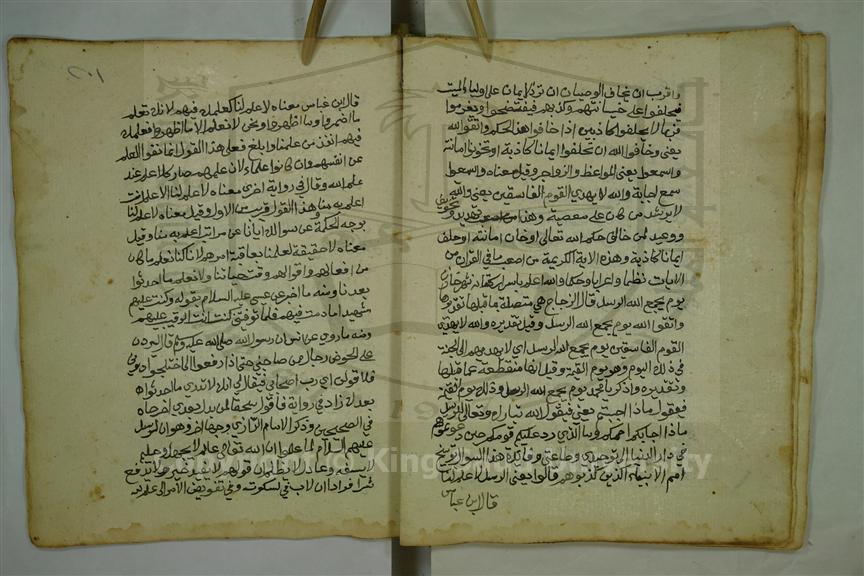 واقرب ان يخاف الوصيان ان ترد الايمان على اولياء الميت
فيحلفوا على خيانتهم وكذبهم فيفتضحوا او يغرموا
فربما لا يحلفوا كاذبين اذا خافوا هذا الحكم واتقوا الله
يعنى وخافوا الله ان تحلفوا ايمانا كاذبة او تخونوا امانة
واسمعوا يعنى المواعظ والزواجر وقيل معناه واسمعوا
سمع اجابة والله لا يهدي القوم الفاسقين يعنى والله
لا يرشد من كان على معصية وهذا تهديد وتخويف
ووعيد لمن خالف حكم الله تعالى او خان امانته او حلف
ايمانا كاذبة وهذه الاية الكريمة من اصعب ما في القران من
الايات نظما واعرابا وحكما والله اعلم باسرار كتابه
يوم يجمع الله الرسل قال الزجاج هي متصلة بما قبلها تقديره
واتقوا الله يوم يجمع الله الرسل وقيل تقديره والله لا يهدي
القوم الفاسقين يوم يجمع الله الرسل اي لا يهديهم الى الجنة
في ذلك اليوم وهو يوم القيمة وقيل انها منقطعة عما قبلها
وتقديره واذكر يا محمد يوم يجمع الله الرسل وذلك يوم القيمة
فيقول ماذا اجبتم يعنى فيقول الله تبارك وتعالى للرسل
ماذا اجابكم اممكم وما الذي رد عليكم قومكم حين دعوتموهم
في دار الدنيا الى توحيدي وطاعتي وفائدة هذا السوال توبيخ
امم الانبياء الذين كذبوهم قالوا يعنى الرسل لا علم لنا
قال ابن عباس
٢٠١
قال ابن عباس معناه لا علم لنا كعلمك فيهم لانك تعلم
ما اضمروا وما اظهروا ونحن لا نعلم الا ما اظهروا فعلمك
فيهم انفذ من علمنا وابلغ فعلى هذا القول انما نفوا العلم
عن انفسهم وان كانوا علماء لان علمهم صار كلا علم عند
علم الله وقال في رواية اخرى معناه لا علم لنا الا علم انت
اعلم به منا وهذا القول قريب من الاول وقيل معناه لا علم لنا
بوجه الحكمة عن سوالك ايانا عن امر انت اعلم به منا وقيل
معناه لا حقيقة لعلمنا بعاقبة امرهم لانا كنا نعلم ما كان
من افعالهم واقوالهم وقت حياتنا ولا نعلم ما احدثوا
بعدنا ومنه ما اخبر عن عيسى عليه السلام بقوله وكنت عليهم
شهيدا ما دمت فيهم فلما توفيتني كنت انت الرقيب عليهم
ومنه ما روي عن انس ان رسول الله صلى الله عليه وسلم قال ليردن
على الحوض رجال من صاحبني حتى اذا رفعوا الي اختلجوا دوني
فلاقولن اي رب اصحابي فيقال لي انك لا تدري ما احدثوا
بعدك زاد في رواية فاقول سحقا لمن بدل بعدي اخرجاه
في الصحيحين وذكر الامام الرازي وجها اخر وهو ان الرسل
عليهم السلام لما علموا ان الله تعالى عالم لا يجهل وحليم
لا يسفه وعادل لا يظلم علموا ان قولهم لا يفيد خيرا ولا يدفع
شرا فراوا ان الادب في السكوت وفي تفويض الامر الى علم الله